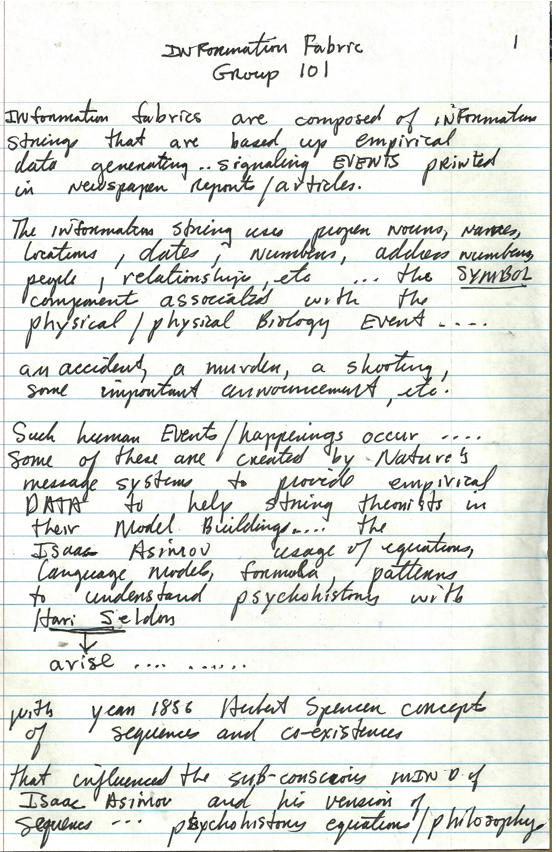 1
INFormation Fabric
Group 101
INFormation fabrics are composed of iNFormation
strings that are based up empirical
data generating .. signaling EVENTS printed
in Newspaper reports/articles.
The iNformation string uses proper nouns, names,
locations, dates, numbers, address numbers,
people, relationships, etc ... the SYMBOL
component associated with the
physical/physical Biology Event ....
an accident, a murder, a shooting,
some important announcement, etc.
Such human Events/happenings occur ....
Some of these are created by Nature's
message systems to provide empirical
DATA to help string theorists in
their Model Buildings.... the
Isaac Asimov usage of equations,
Language Models, formula, patterns
to understand psychohistory with
Hari Seldon
arise .... ......
with year 1856 Herbert Spencer concepts
of sequences and co-existences
that influenced the sub-conscious MIND of
Isaac Asimov and his version of
sequence ... psychohistory equations/philosophy